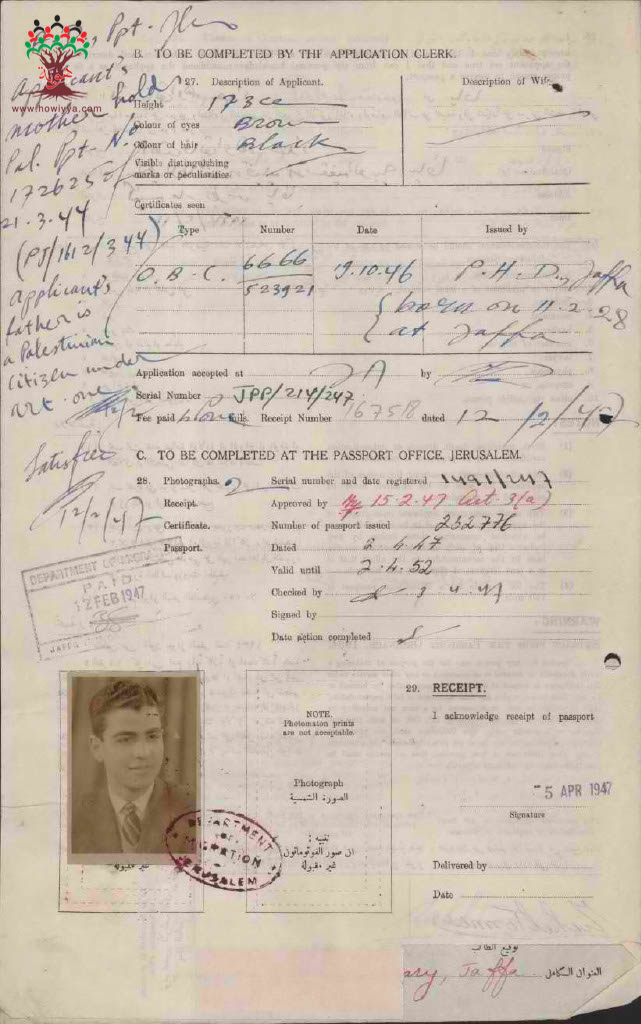 www.howiyya.com
Ppt.
applicant's
mother hold
Pal. Ppt. No
172625 of
21.3.44
(PJ/1612/344)
applicant's
father is
a Palestinian
citizen under
art. one
12/2
Satisfied
12/2/47
B. TO BE COMPLETED BY THE APPLICATION CLERK.
27. Description of Applicant. Description of Wife
Height 173
Colour of eyes Brown
Colour of hair Black
Visible distinguishing
marks or peculiarities.
Certificates seen
Type Number Date Issued by
O.B.C. 6666 19.10.46 P.H.D., Jaffa
523921
{ born on 11.2.28
at Jaffa
Application accepted at JA by
Serial Number JPP/214/247
Fee paid mils. Receipt Number 16758 dated 12/2/47
C. TO BE COMPLETED AT THE PASSPORT OFFICE, JERUSALEM.
28. Photographs. 2 Serial number and date registered
Receipt. Approved by 15.2.47 Art. 3(a)
Certificate. Number of passport issued 232776
Passport. Dated 2.4.47
Valid until 2.4.52
Checked by 3.4.47
Signed by
Date action completed
DEPARTMENT OF
PAID
12 FEB 1947
JAFFA
29. RECEIPT.
I acknowledge receipt of passport
5 APR 1947
Signature
Delivered by
Date
NOTE.
Photomaton prints
are not acceptable.
Photograph
الصورة الشمسية
تنبيه :
ان صور الفوتوماتون
غير مقبولة
غير مقبولة
DEPARTMENT
OF
MIGRATION
JERUSALEM
توقيع الطالب
العنوان الكامل
ary, Jaffa